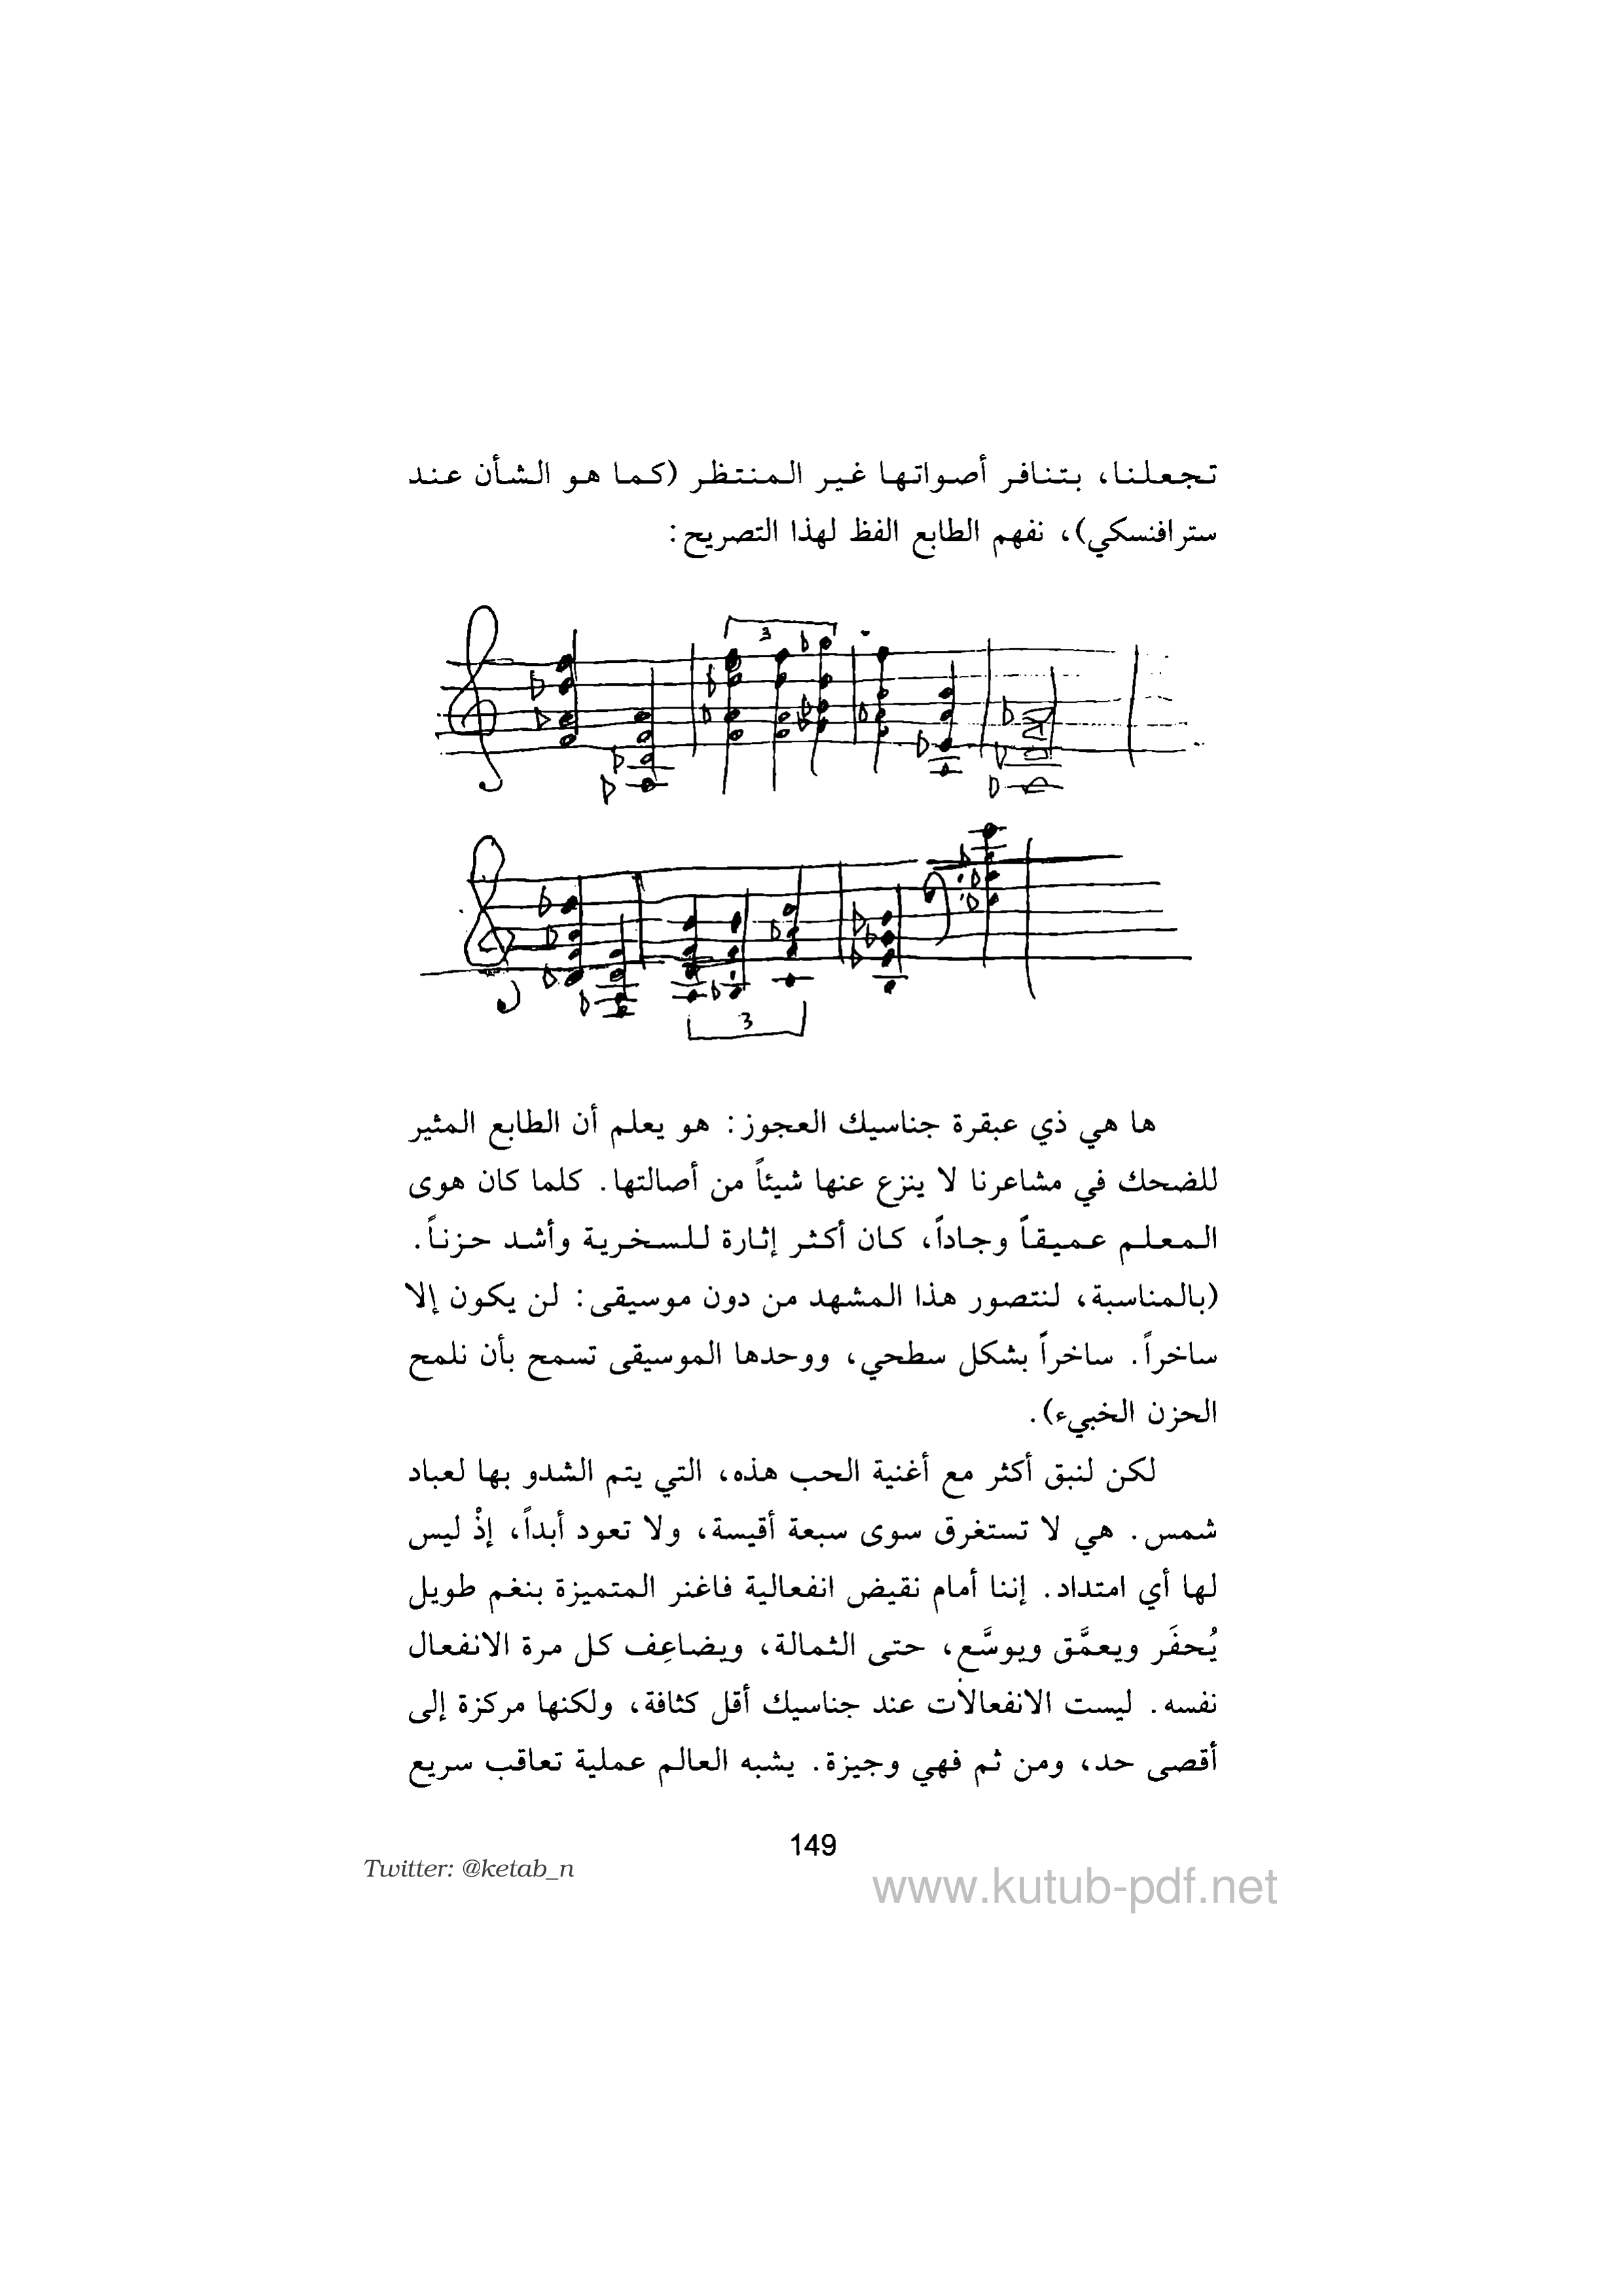 تجعلنا، بتنافر أصواتها غير المنتظر (كما هو الشأن عند
سترافنسكي)، نفهم الطابع الفظ لهذا التصريح:
3
3
ها هي ذي عبقرة جناسيك العجوز: هو يعلم أن الطابع المثير
للضحك في مشاعرنا لا ينزع عنها شيئاً من أصالتها. كلما كان هوى
المعلم عميقاً وجاداً، كان أكثر إثارة للسخرية وأشد حزناً.
(بالمناسبة، لنتصور هذا المشهد من دون موسيقى: لن يكون إلا
ساخراً. ساخراً بشكل سطحي، ووحدها الموسيقى تسمح بأن نلمح
الحزن الخبيء).
لكن لنبق أكثر مع أغنية الحب هذه، التي يتم الشدو بها لعباد
شمس. هي لا تستغرق سوى سبعة أقيسة، ولا تعود أبداً، إذْ ليس
لها أي امتداد. إننا أمام نقيض انفعالية فاغنر المتميزة بنغم طويل
يُحفَر ويعمَّق ويوسَّع، حتى الثمالة، ويضاعِف كل مرة الانفعال
نفسه. ليست الانفعالات عند جناسيك أقل كثافة، ولكنها مركزة إلى
أقصى حد، ومن ثم فهي وجيزة. يشبه العالم عملية تعاقب سريع
149
Twitter: @ketab_n
www.kutub-pdf.net